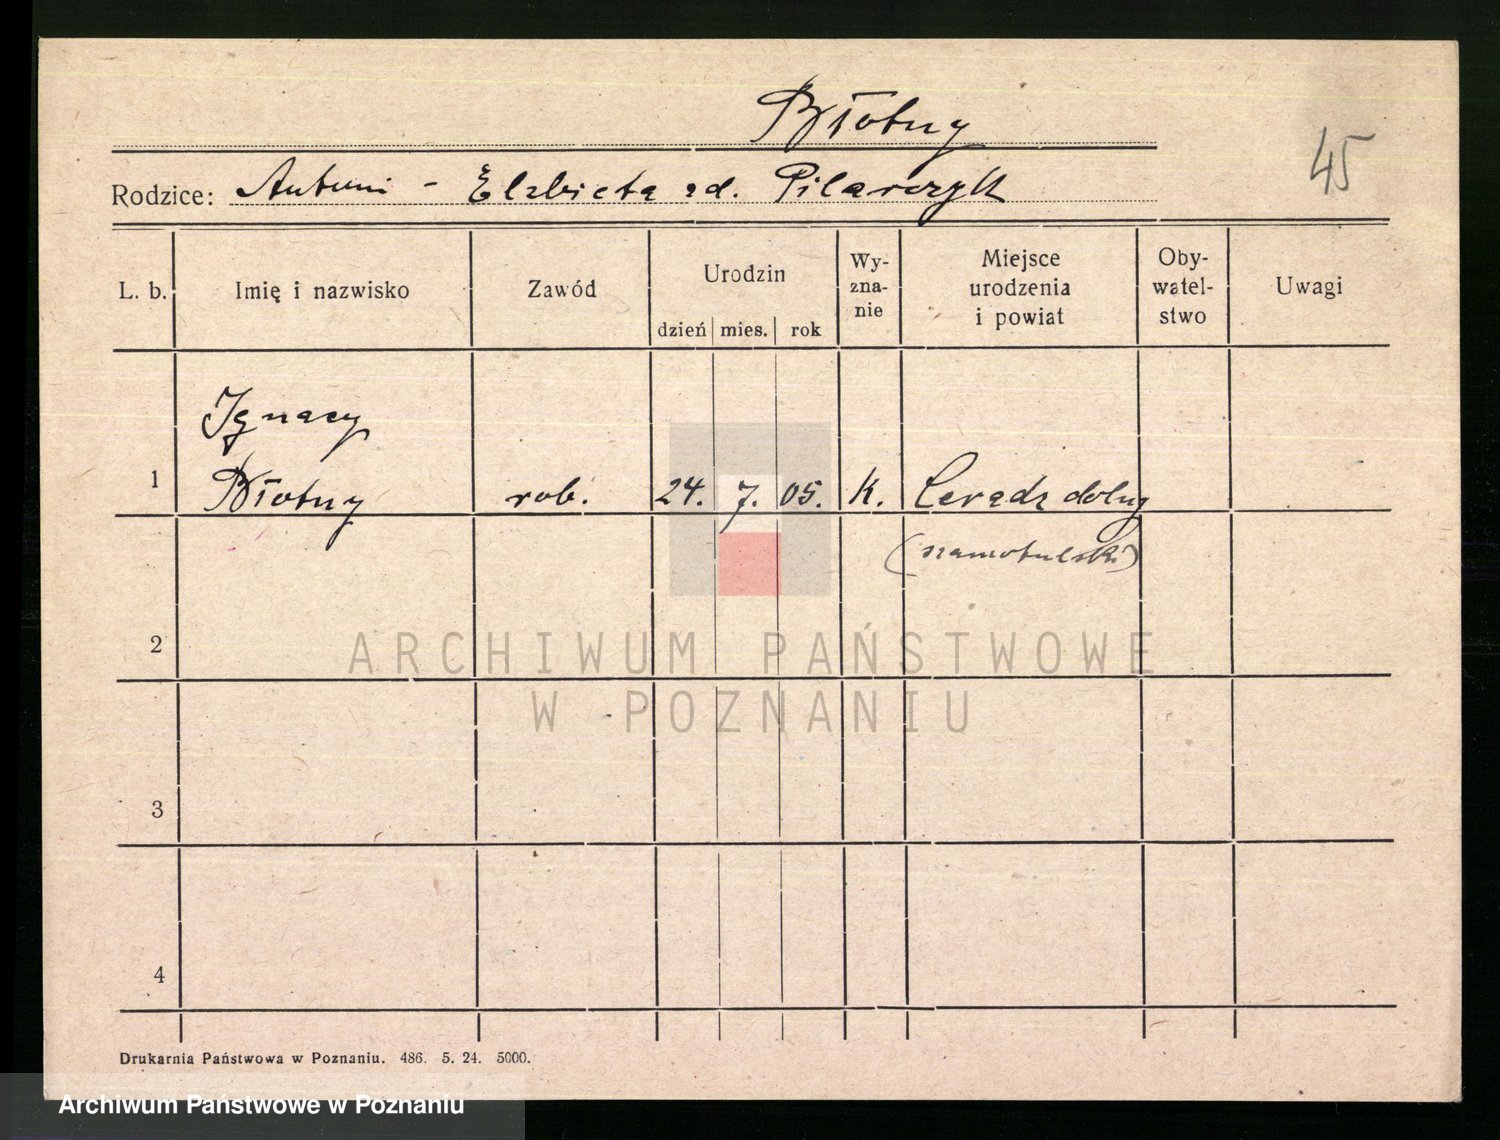 Błotny
45
Rodzice: Antoni - Elżbieta zd. Pilarczyk
L. b. Imię i nazwisko Zawód Urodzin dzień mies. rok Wy-zna-nie Miejsce urodzenia i powiat Oby-watel-stwo Uwagi
Ignacy
1 Błotny rob. 24. 7. 05. K. Ceradz dolny
(szamotulski)
2
ARCHIWUM PAŃSTWOWE
W POZNANIU
3
4
Drukarnia Państwowa w Poznaniu. 486. 5. 24. 5000.
Archiwum Państwowe w Poznaniu